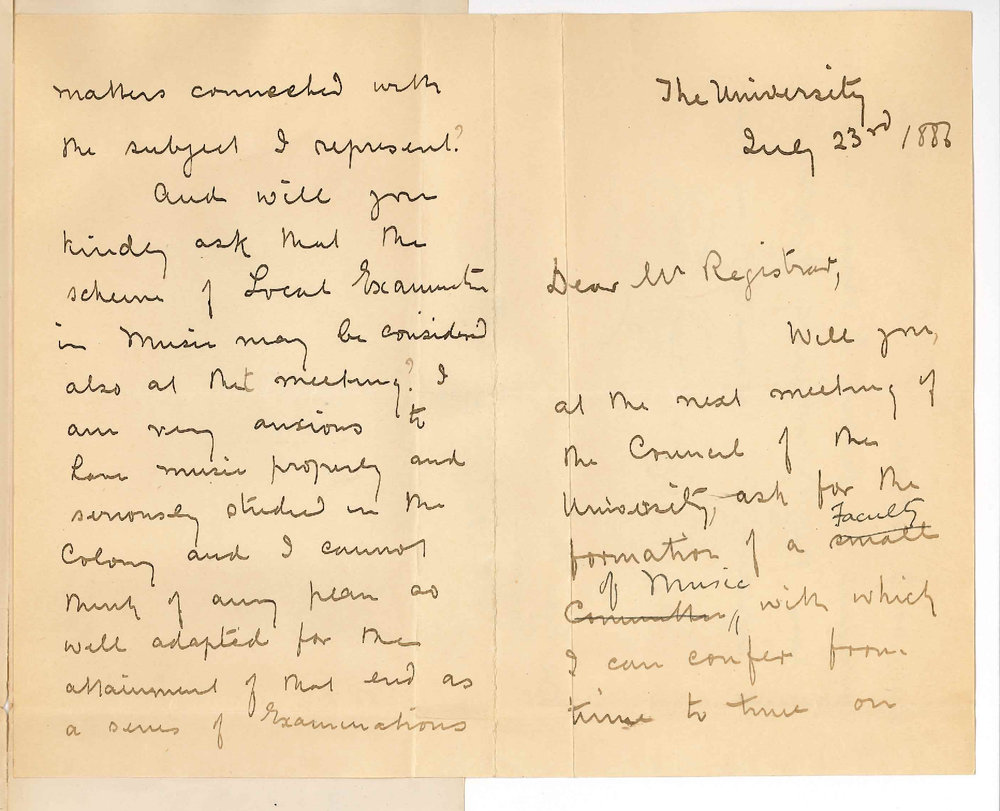 The University
July 23rd 1886
Dear Mr Registrar,
Will you,
at the next meeting of
the Council of the
University, ask for the
Faculty
formation of a small
of Music
Committee, with which
I can confer from
time to time on
matters connected with
the subject I represent?
And will you
kindly ask that the
scheme of Local Examination
in Music may be considered
also at that meeting? I
am very anxious to
have music properly and
seriously studied in the
Colony and I cannot
think of any plan so
well adapted for the
attainment of that end as
a series of Examinations